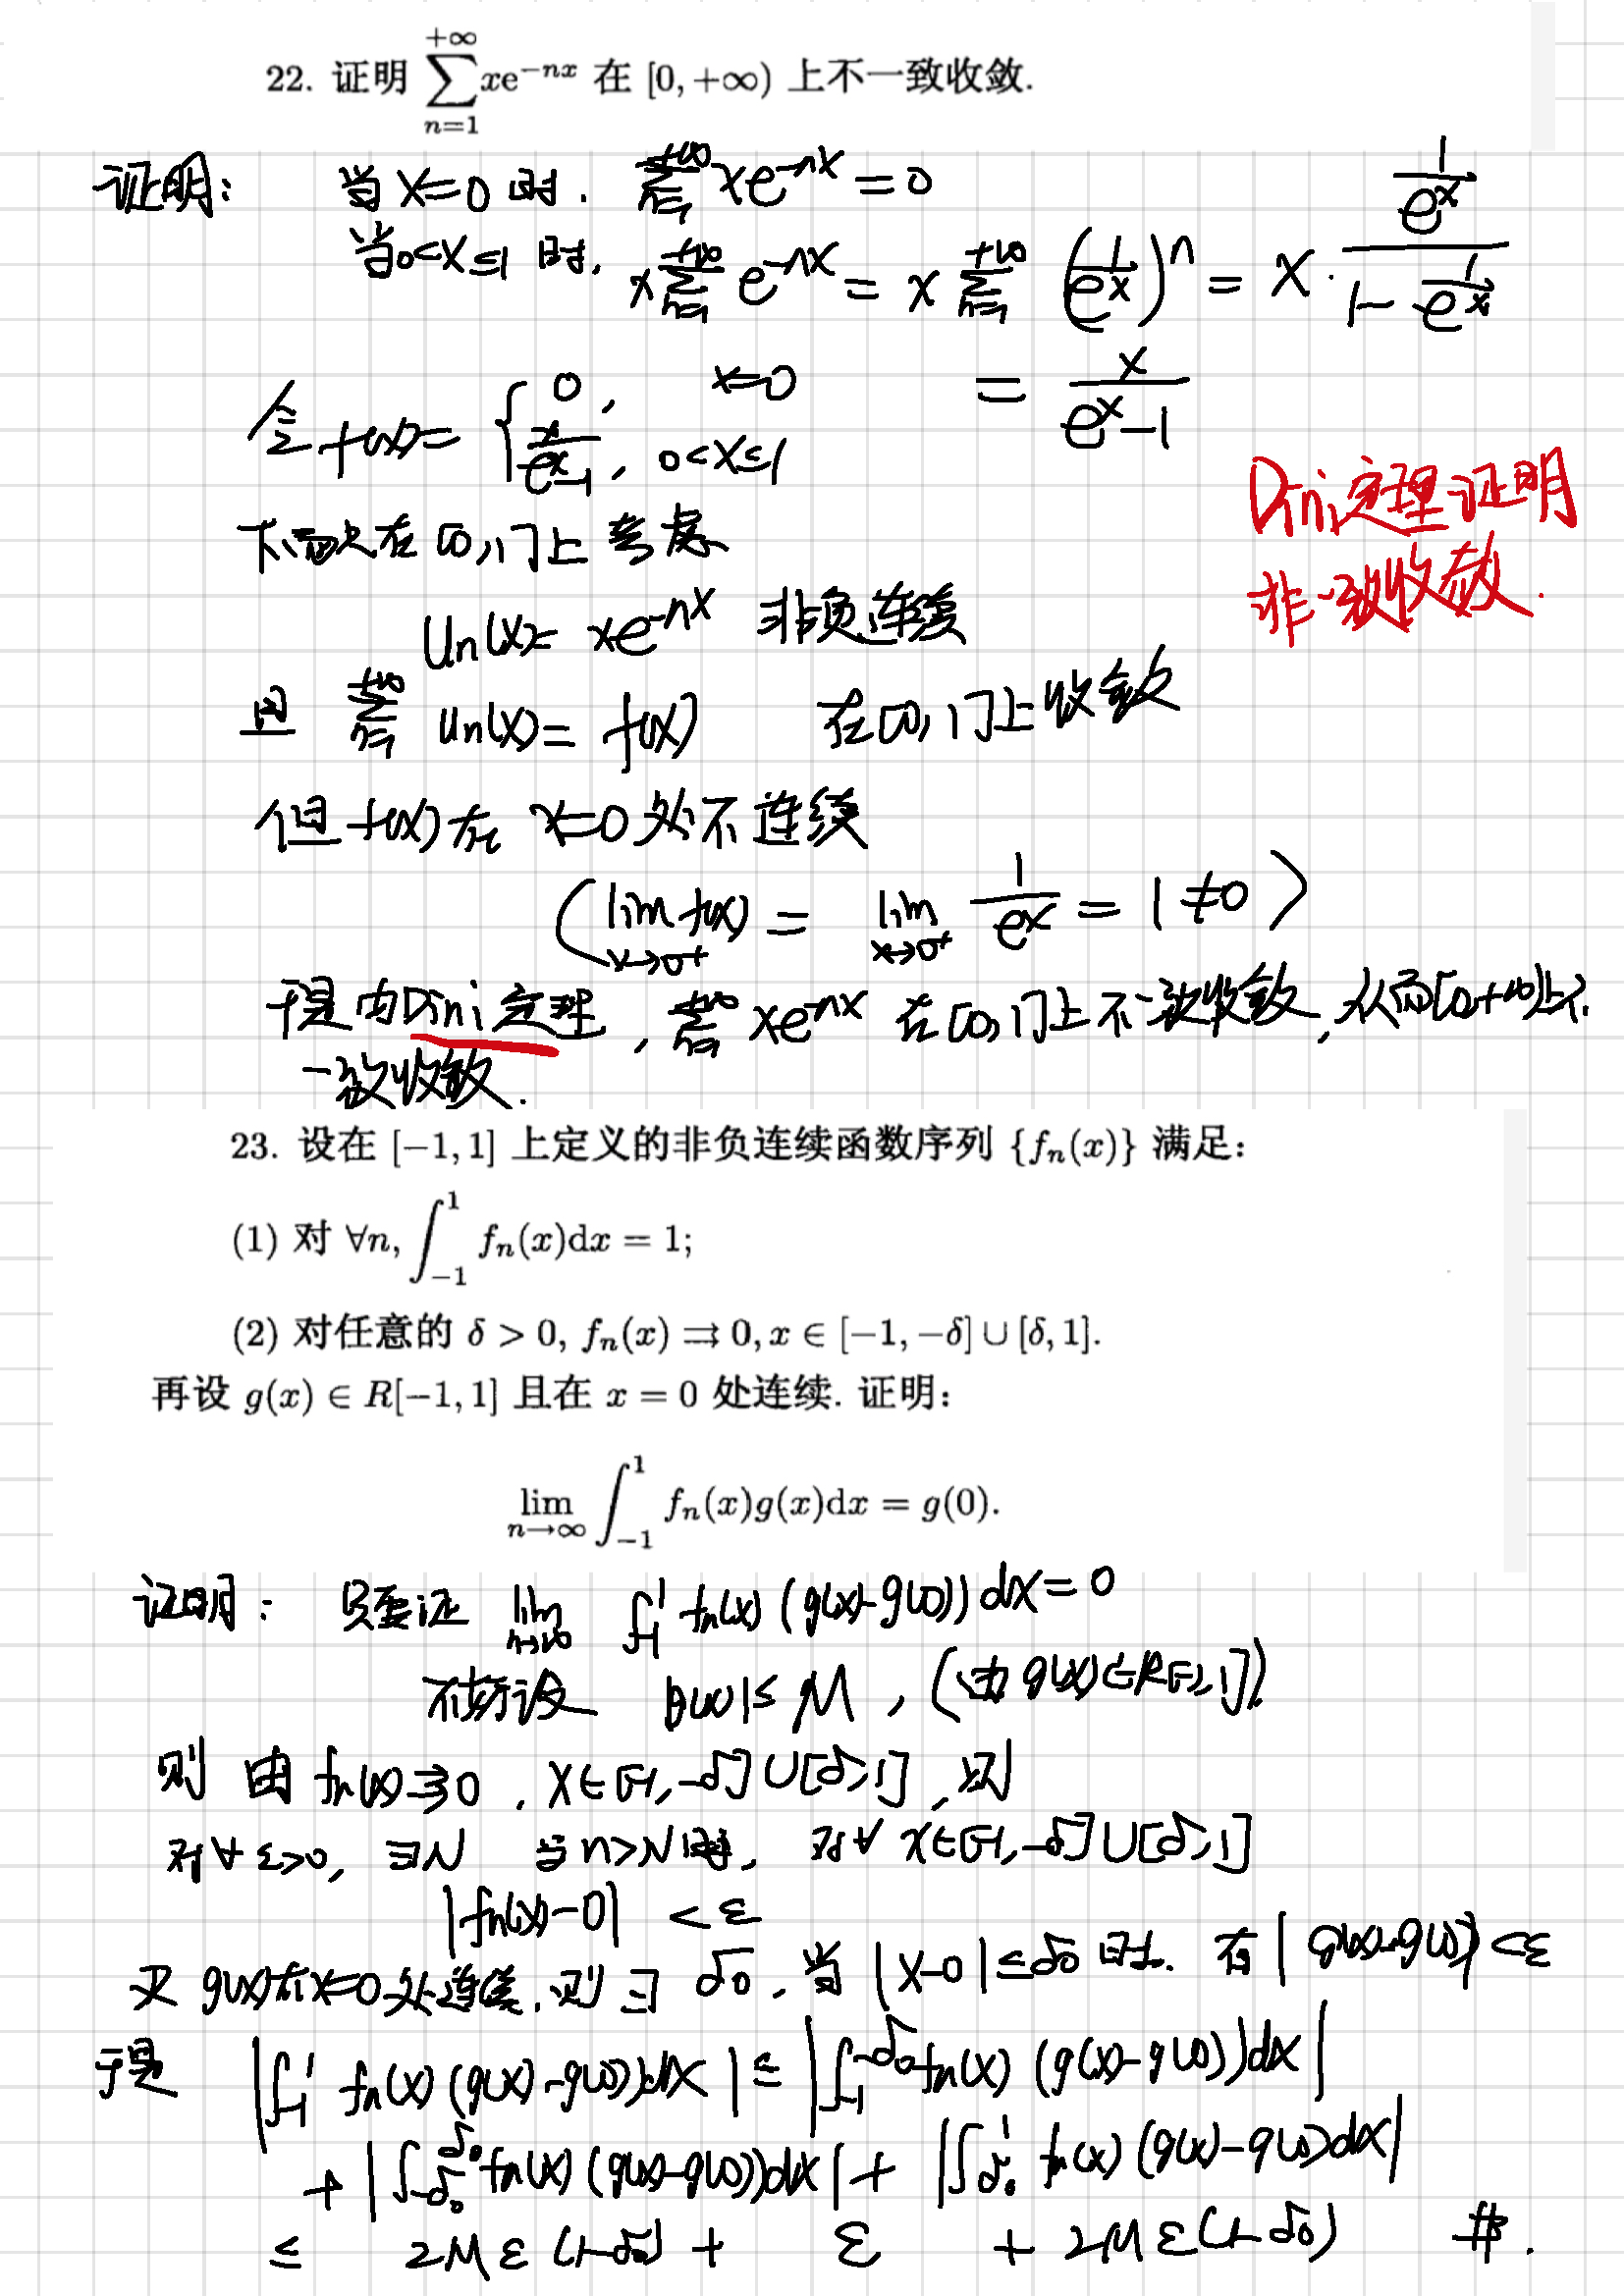 22. 证明 $\sum_{n=1}^{+\infty} x\mathrm{e}^{-nx}$ 在 $[0,+\infty)$ 上不一致收敛.
证明: 当 $x=0$ 时. $\sum_{n=1}^{+\infty} xe^{-nx}=0$
当 $0<x\leq 1$ 时, $x\sum_{n=1}^{+\infty} e^{-nx} = x\sum_{n=1}^{+\infty}\left(\frac{1}{e^x}\right)^n = x\cdot\frac{\frac{1}{e^x}}{1-\frac{1}{e^x}}$
$=\frac{x}{e^x-1}$
令 $f(x)=\begin{cases}0, & x=0\\ \frac{x}{e^x-1}, & 0<x\leq 1\end{cases}$
Dini定理证明
非一致收敛.
下面只在 $[0,1]$ 上考虑
$u_n(x)=xe^{-nx}$ 非负连续
且 $\sum_{n=1}^{+\infty} u_n(x)=f(x)$ 在 $[0,1]$ 上收敛
但 $f(x)$ 在 $x=0$ 处不连续
$(\lim_{x\to 0^+} f(x)=\lim_{x\to 0^+}\frac{1}{e^x}=1\neq 0)$
于是由Dini定理, $\sum_{n=1}^{+\infty} xe^{-nx}$ 在 $[0,1]$ 上不一致收敛, 从而 $[0,+\infty)$ 上不
一致收敛.
23. 设在 $[-1,1]$ 上定义的非负连续函数序列 $\{f_n(x)\}$ 满足:
(1) 对 $\forall n, \int_{-1}^{1} f_n(x)\mathrm{d}x=1$;
(2) 对任意的 $\delta>0, f_n(x)\rightrightarrows 0, x\in[-1,-\delta]\cup[\delta,1]$.
再设 $g(x)\in R[-1,1]$ 且在 $x=0$ 处连续. 证明:
$\lim_{n\to\infty}\int_{-1}^{1} f_n(x)g(x)\mathrm{d}x=g(0)$.
证明: 只要证 $\lim_{n\to\infty}\int_{-1}^{1} f_n(x)(g(x)-g(0))dx=0$
不妨设 $|g(x)|\leq M$, (由 $g(x)\in R[-1,1]$)
则 由 $f_n(x)\rightrightarrows 0, x\in[-1,-\delta]\cup[\delta,1]$, 则
对 $\forall \varepsilon>0, \exists N$ 当 $n>N$ 时, 对 $\forall x\in[-1,-\delta]\cup[\delta,1]$
$|f_n(x)-0|<\varepsilon$
又 $g(x)$ 在 $x=0$ 处连续, 则 $\exists \delta_0$, 当 $|x-0|\leq\delta_0$ 时. 有 $|g(x)-g(0)|<\varepsilon$
于是 $\left|\int_{-1}^{1} f_n(x)(g(x)-g(0))dx\right|\leq\left|\int_{-1}^{-\delta_0} f_n(x)(g(x)-g(0))dx\right|$
$+\left|\int_{-\delta_0}^{\delta_0} f_n(x)(g(x)-g(0))dx\right|+\left|\int_{\delta_0}^{1} f_n(x)(g(x)-g(0))dx\right|$
$\leq 2M\varepsilon(1-\delta_0)+\varepsilon+2M\varepsilon(1-\delta_0)$ #.